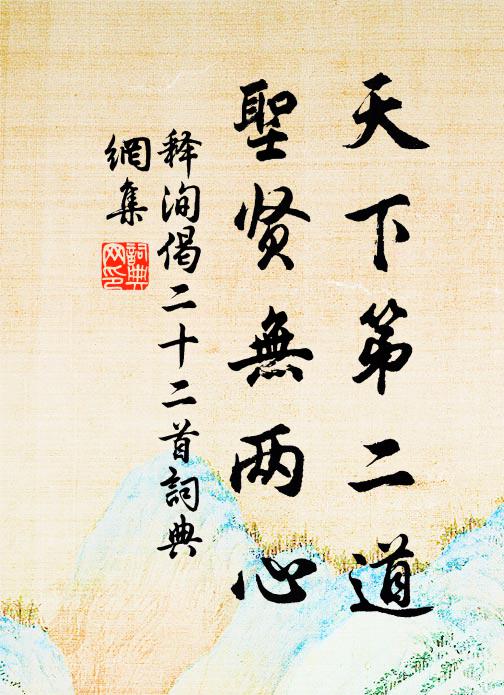 天下第二道
聖贤無两心
释洵偈二十二首詞典
網集
詞典
网印